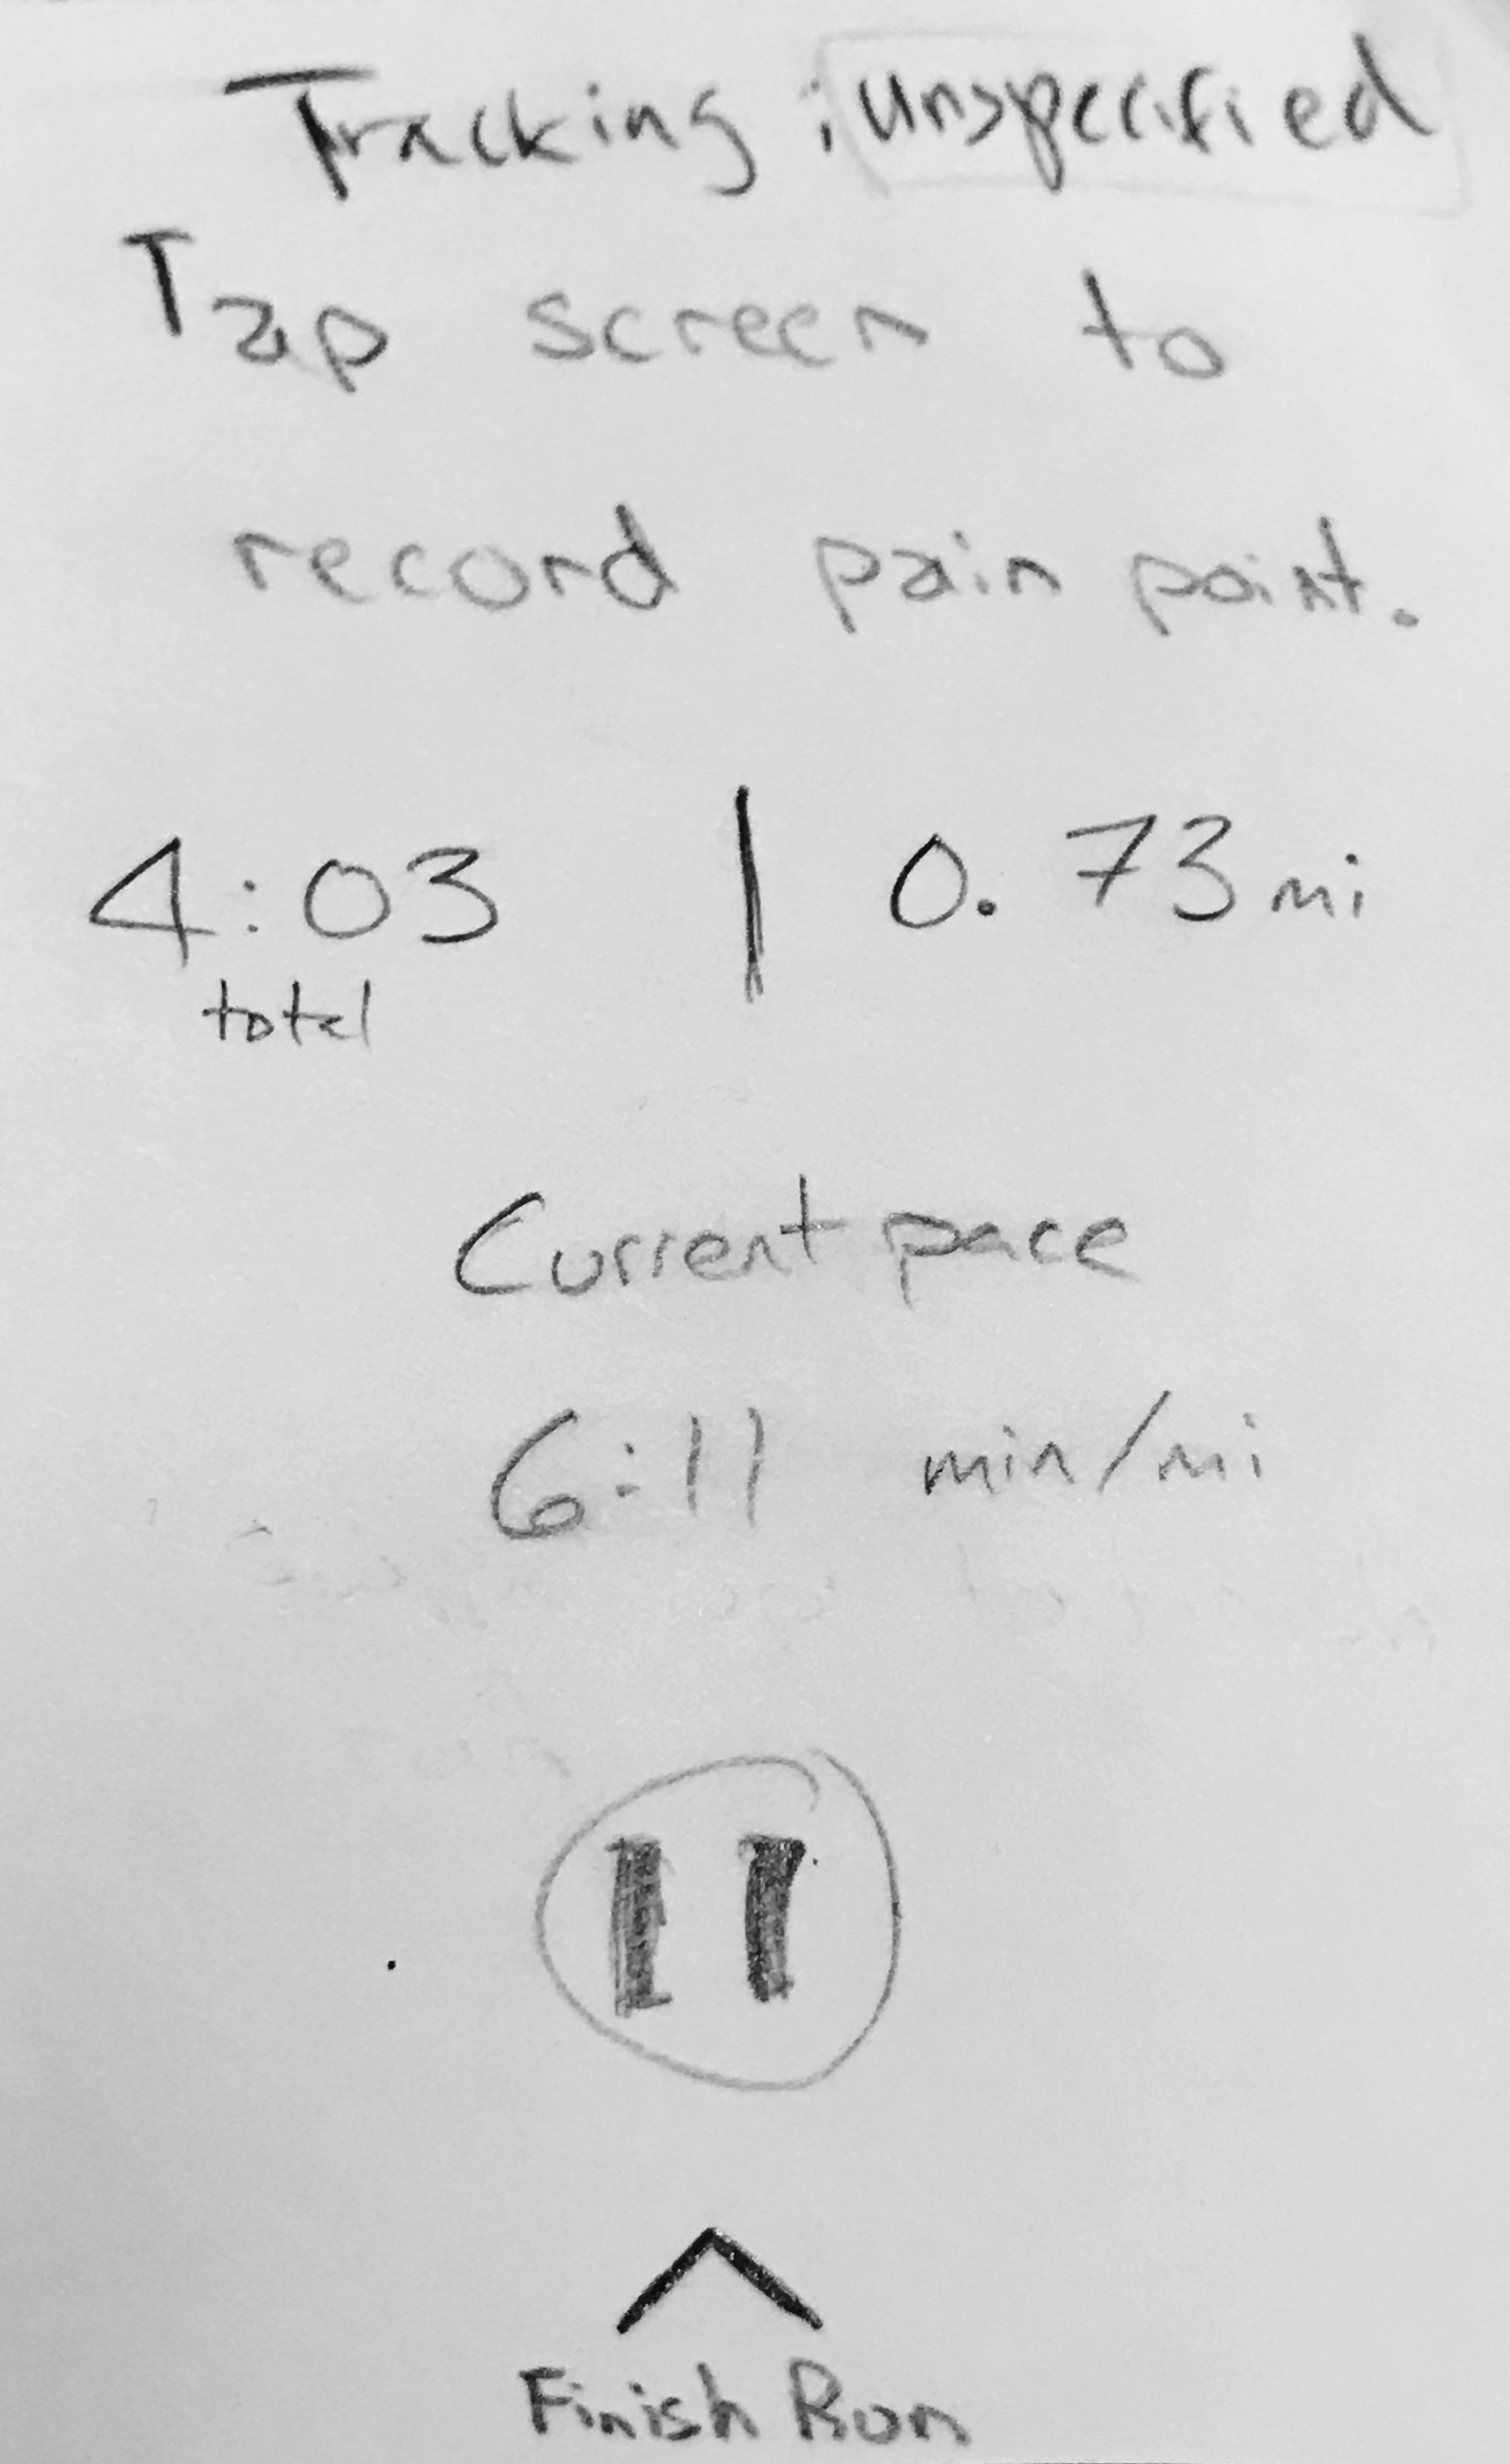 Tracking : unspecified
Tap screen to
record pain point.
4:03 | 0.73 mi
total
Current pace
6:11 min/mi
Finish Run